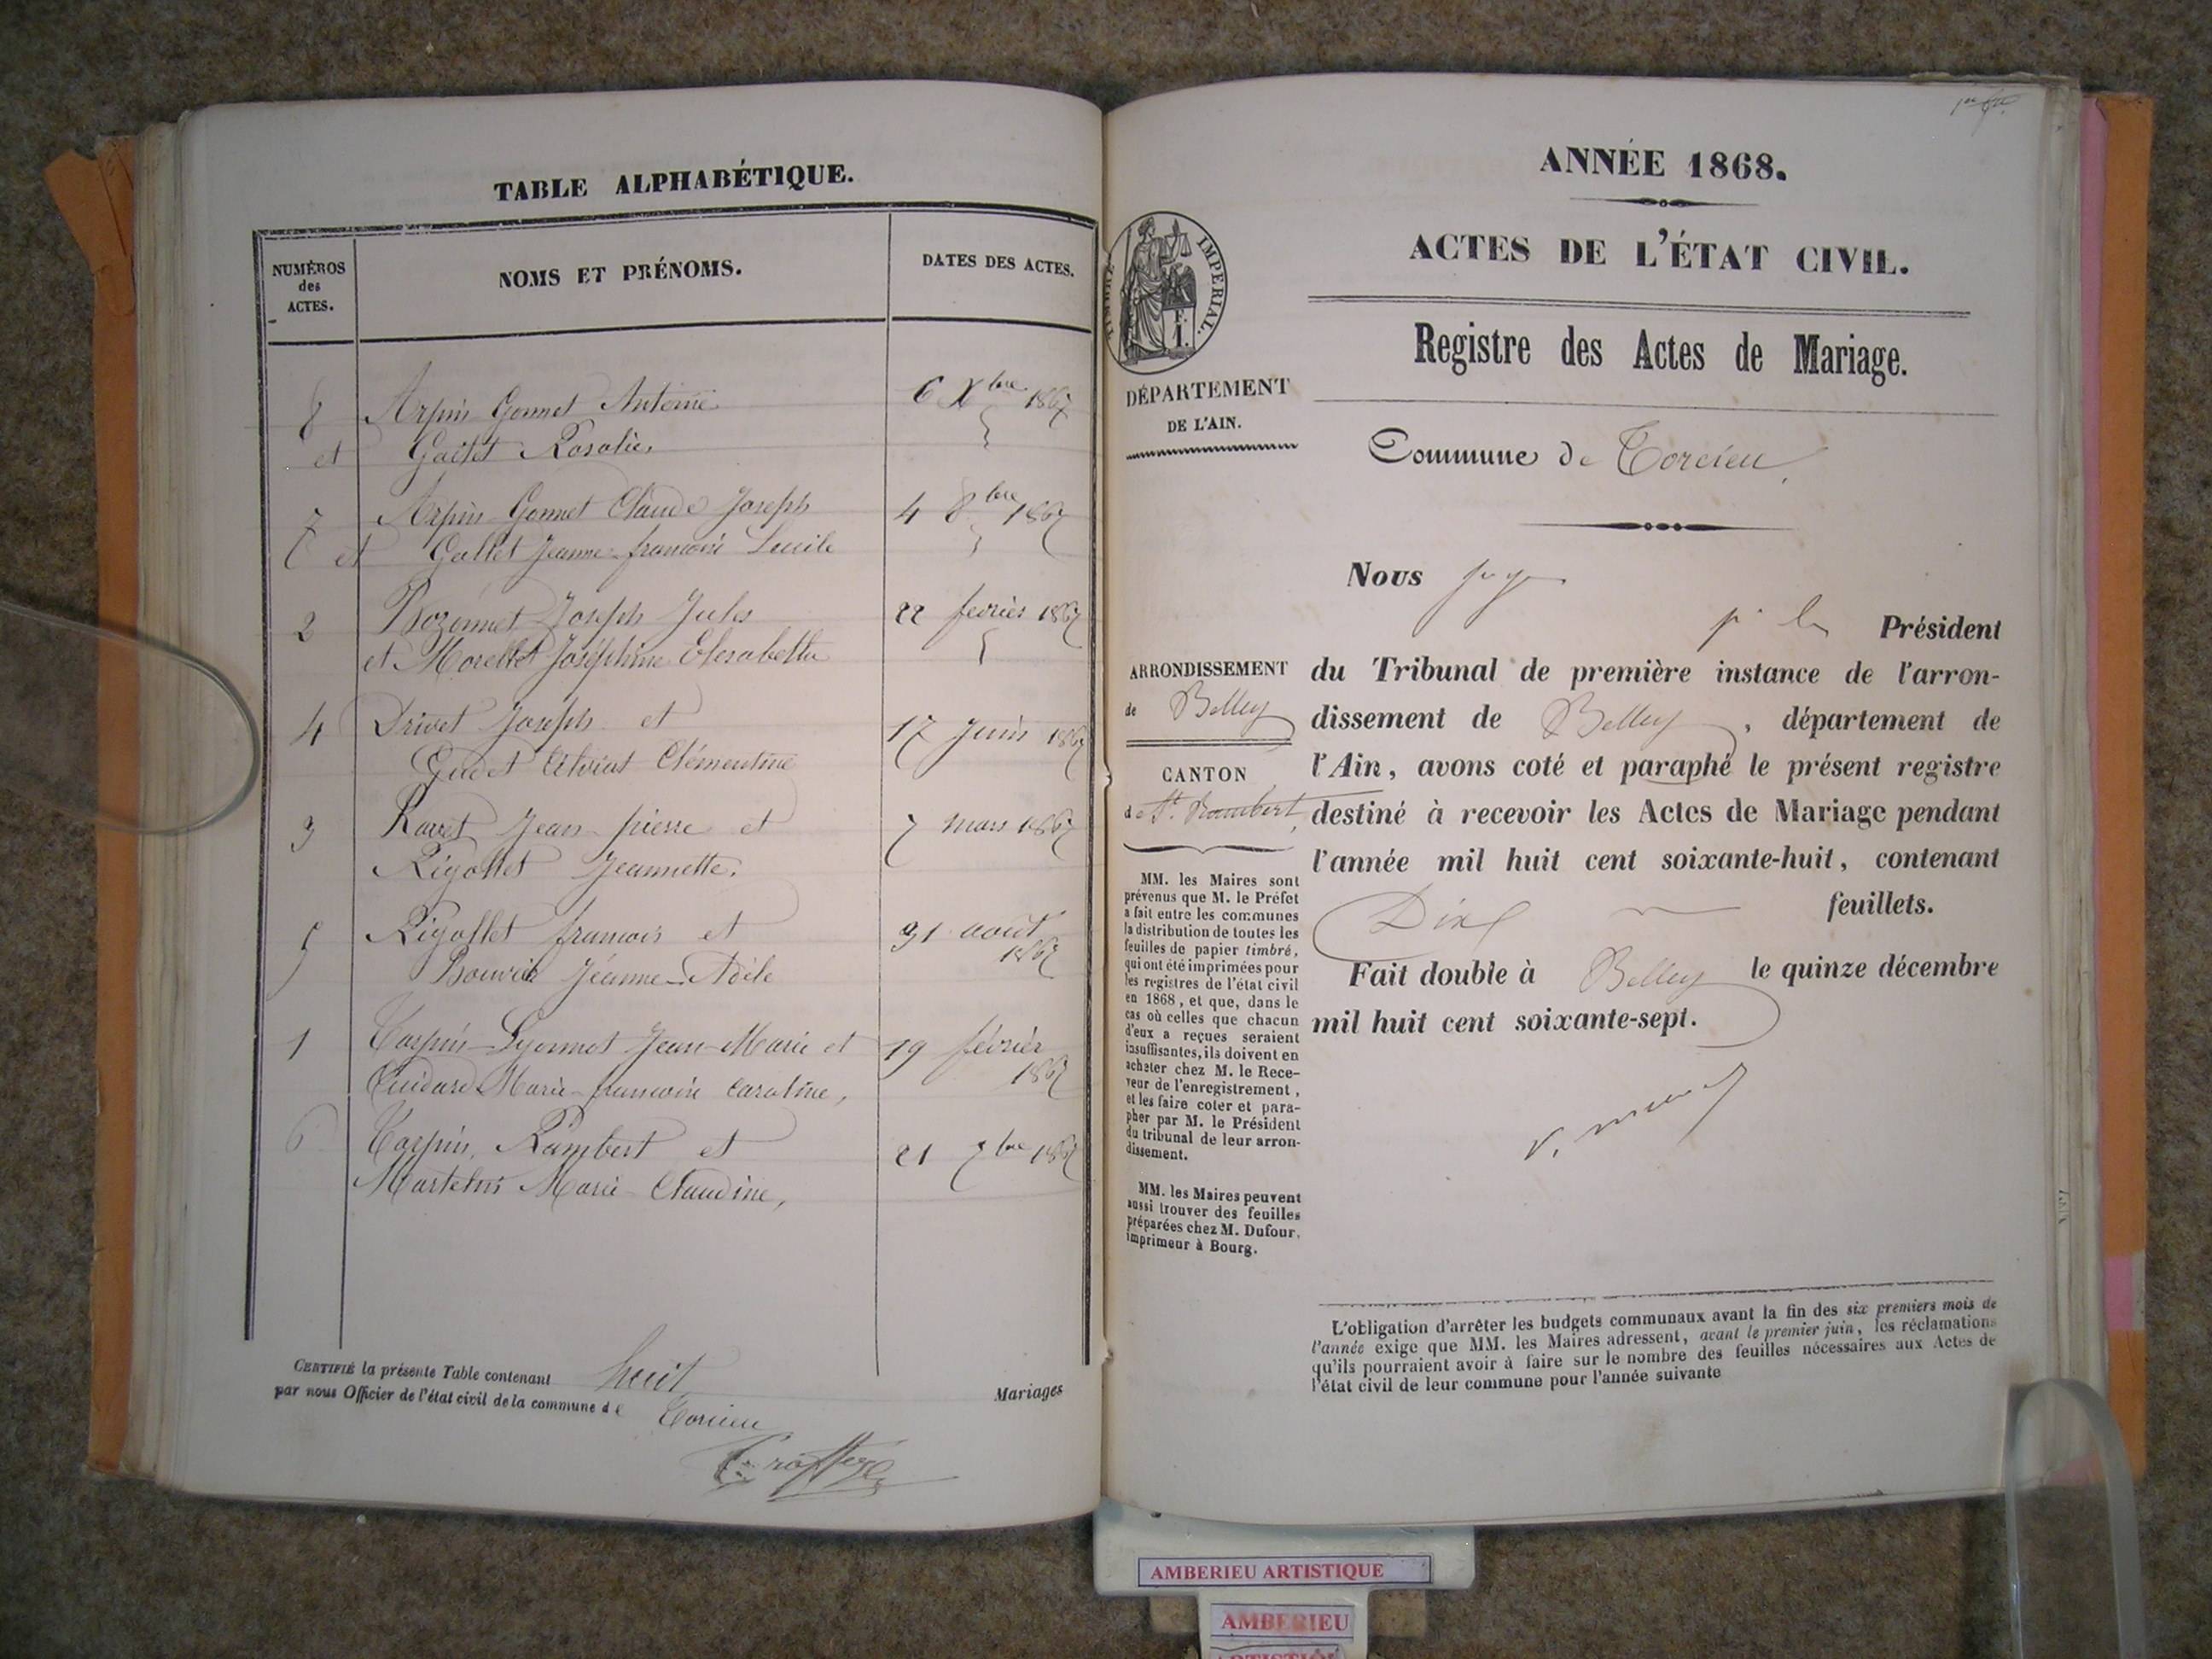 TABLE ALPHABÉTIQUE.
NUMÉROS
des
ACTES.
NOMS ET PRÉNOMS.
DATES DES ACTES.
8 Arpin Gonnet Antoine 6 Xbre 1867
et Gallet Rosalie,
7 Arpin Gonnet Claude Joseph 4 8bre 1867
et Gallet Jeanne françoise Lucile
2 Bozonnet Joseph Jules 22 fevrier 1867
et Morellet Joséphine Elesabeth
4 Drivet Joseph et 17 Juin 1867
Clémentine
3 Ravet Jean pierre et 7 mars 1867
Rigollet Jeannette.
5 Rigollet francois et 31 août
1867
Bouvier Jeanne Adèle
1 Carpin Lyonnet Jean Marie et 19 février
1867
Marie françoise Caroline,
6 Carpin, Rambert et 21 7bre 1867
Martelin Marie Claudine,
CERTIFIÉ la présente Table contenant huit Mariages
par nous Officier de l'état civil de la commune de Torcieu
1er fet.
ANNÉE 1868.
ACTES DE L'ÉTAT CIVIL.
Registre des Actes de Mariage.
TIMBRE IMPERIAL.
F.
1.
DÉPARTEMENT
DE L'AIN.
Commune de Torcieu
ARRONDISSEMENT
de Belley
CANTON
de St. Rambert,
MM. les Maires sont
prévenus que M. le Préfet
a fait entre les communes
la distribution de toutes les
feuilles de papier timbré,
qui ont été imprimées pour
les registres de l'état civil
en 1868, et que, dans le
cas où celles que chacun
d'eux a reçues seraient
insuffisantes, ils doivent en
acheter chez M. le Rece-
veur de l'enregistrement,
et les faire coter et para-
pher par M. le Président
du tribunal de leur arron-
dissement.
MM. les Maires peuvent
aussi trouver des feuilles
préparées chez M. Dufour,
imprimeur à Bourg.
Nous juge
pr le Président
du Tribunal de première instance de l'arron-
dissement de Belley, département de
l'Ain, avons coté et paraphé le présent registre
destiné à recevoir les Actes de Mariage pendant
l'année mil huit cent soixante-huit, contenant
Dix feuillets.
Fait double à Belley le quinze décembre
mil huit cent soixante-sept.
L'obligation d'arrêter les budgets communaux avant la fin des six premiers mois de
l'année exige que MM. les Maires adressent, avant le premier juin, les réclamations
qu'ils pourraient avoir à faire sur le nombre des feuilles nécessaires aux Actes de
l'état civil de leur commune pour l'année suivante
AMBERIEU ARTISTIQUE
AMBERIEU
ARTISTIQUE